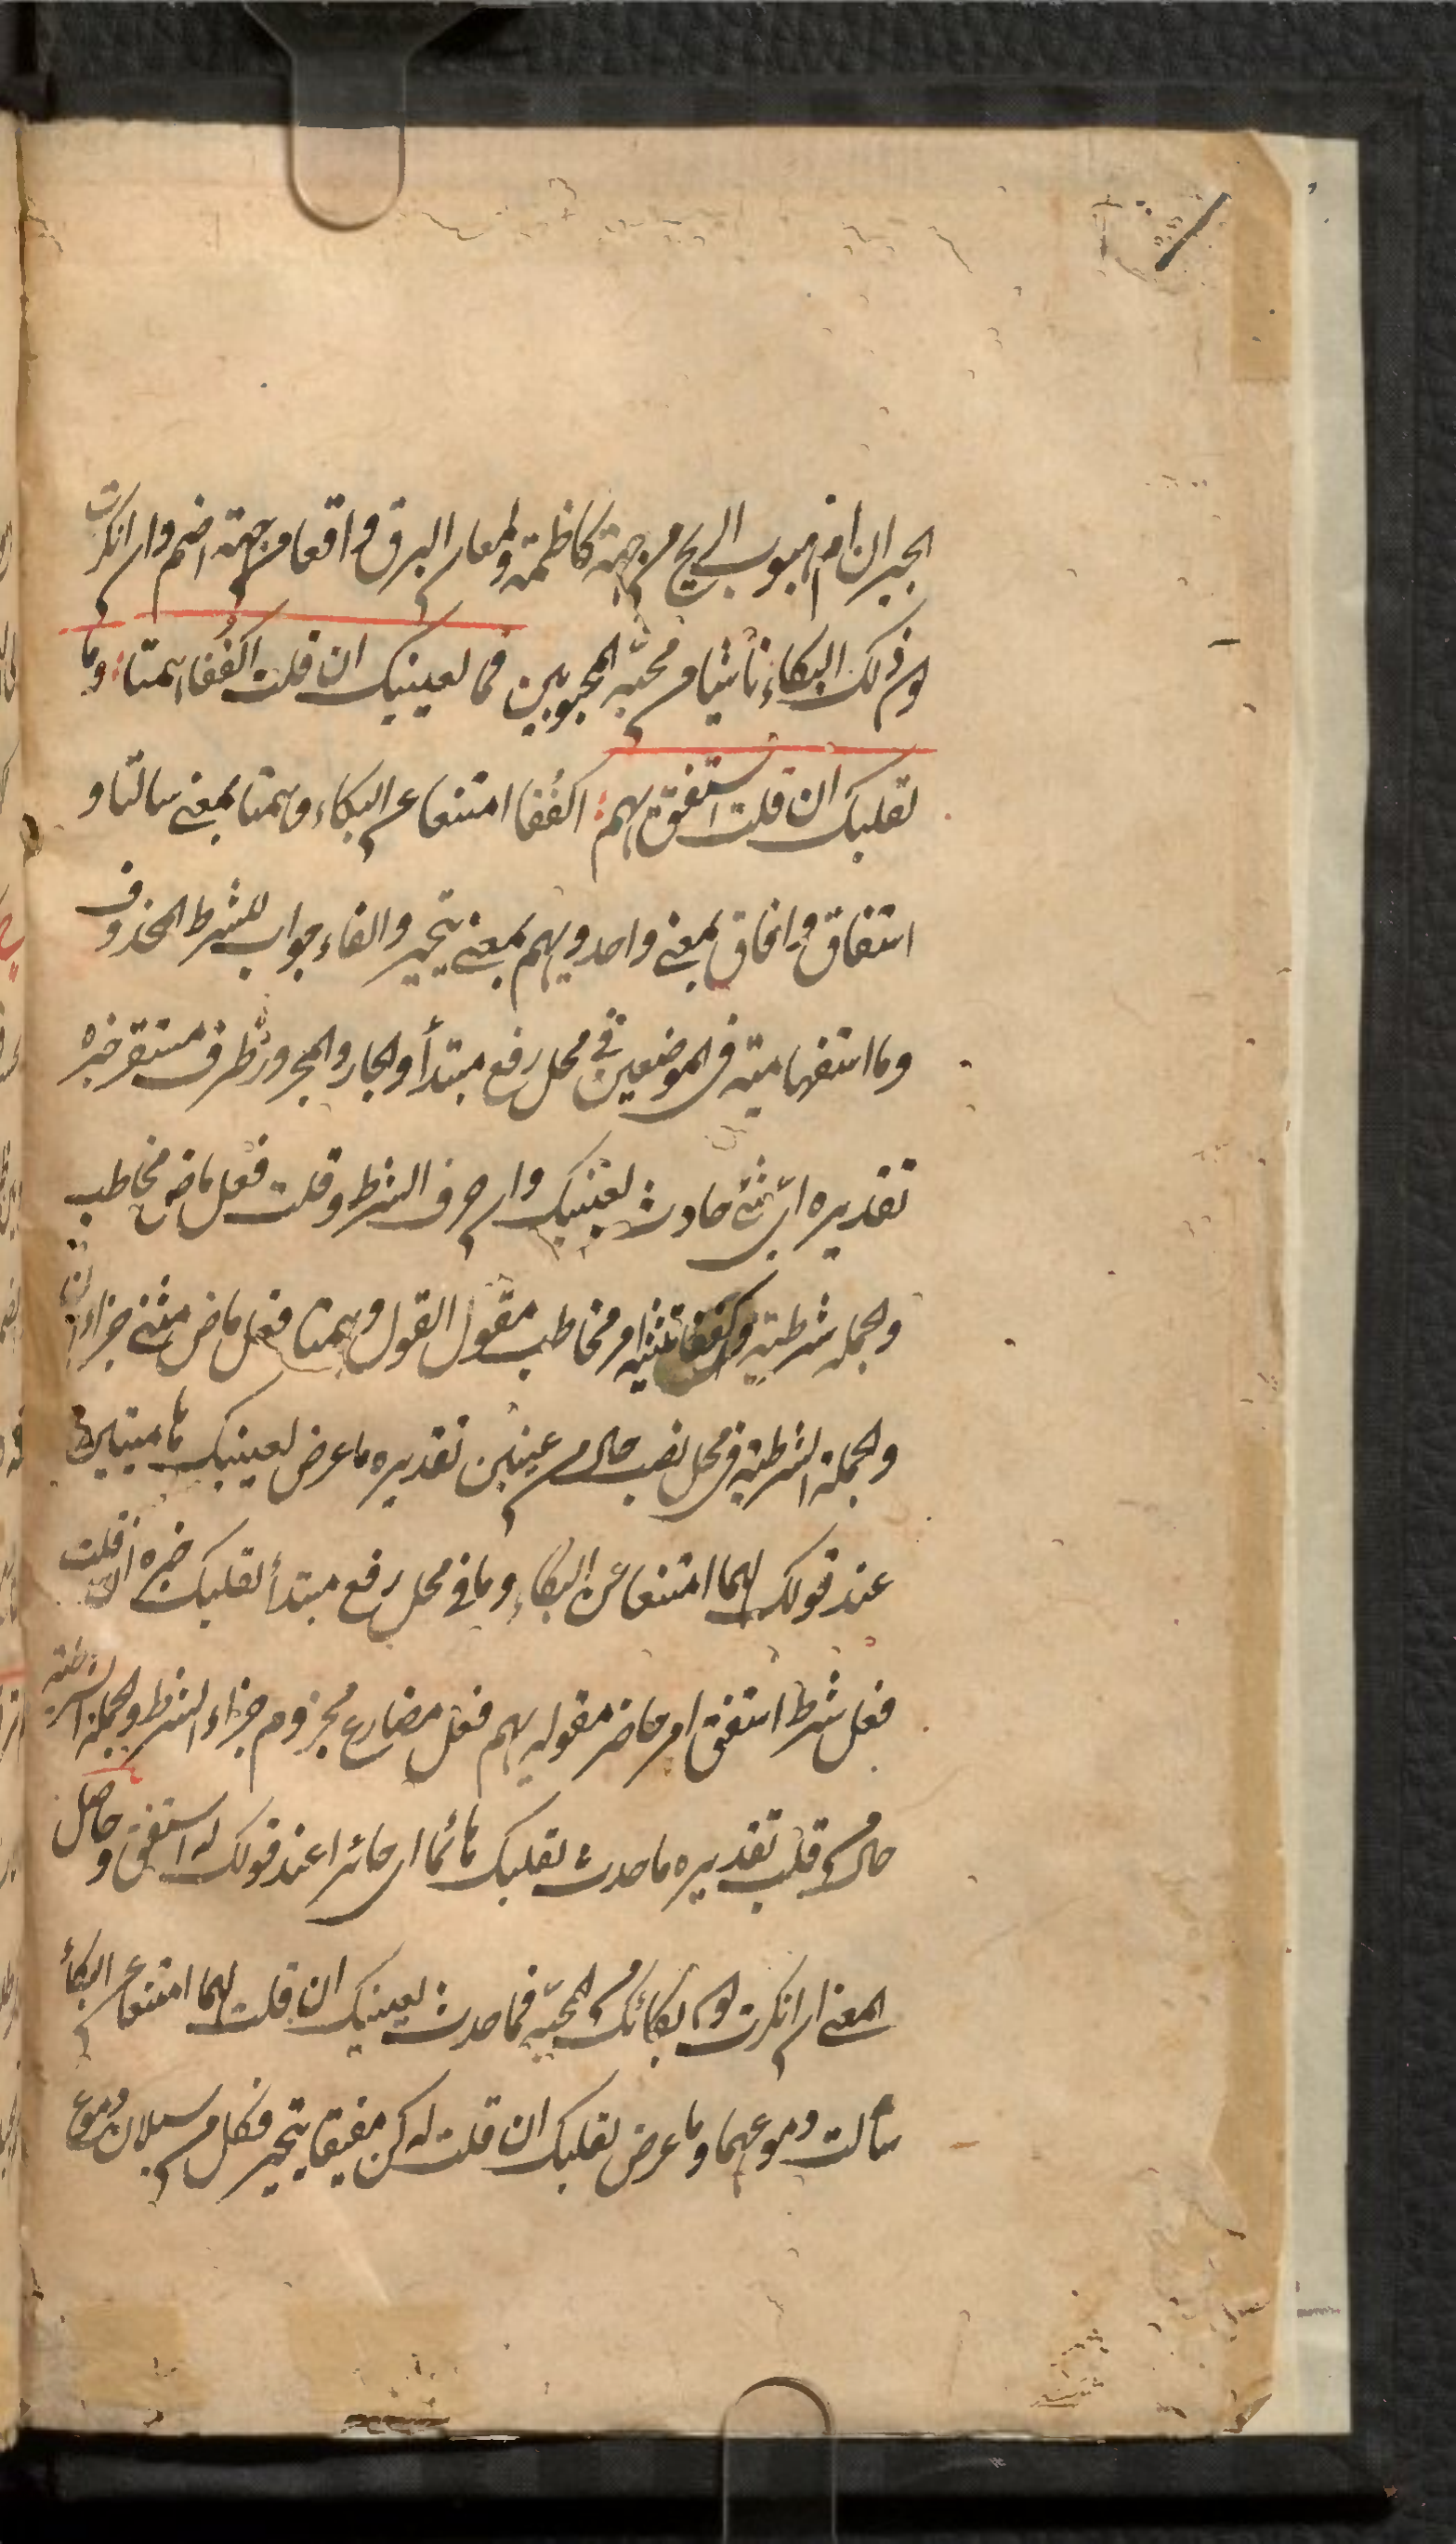 الجيران ام هبوب الريح من جهة كاظمة ولمعان البرق واقعا من جهة اضم وان انكرت
كون ذلك البكاء ناشئا من محبة المحبوبين فما لعينيك ان قلت اكففا همتا : وما
لقلبك ان قلت استفق يهم : اكففا امتنعا عن البكاء وهمتا بمعنى سالتا و
استفاق وافاق بمعنى واحد ويهم بمعنى يتحير والفاء جواب للشرط المحذوف
وما استفهامية في الموضعين في محل رفع مبتدأ والجار والمجرور ظرف مستقر خبره
تقديره اى شئ حادث لعينيك وان حرف الشرط وقلت فعل ماض مخاطب
والجملة شرطية واكففا تثنية امر مخاطب مقول القول وهمتا فعل ماض مثنى جزاء ان
والجملة الشرطية في محل نصب حال من عينين تقديره ما عرض لعينيك هاميتين
عند قولك لهما امتنعا عن البكاء وما في محل رفع مبتدأ لقلبك خبره ان قلت
فعل شرط استفق امر حاضر مقوله يهم فعل مضارع مجزوم جزاء الشرط والجملة الشرطية
حال من قلب تقديره ما حدث لقلبك هائما اى حائرا عند قولك له استفق وحاصل
المعنى ان انكرت كون بكائك من المحبة فما حدث لعينيك ان قلت لهما امتنعا عن البكاء
سالت دموعهما وما عرض لقلبك ان قلت له كن مفيقا يتحير فكل من سيلان دموع